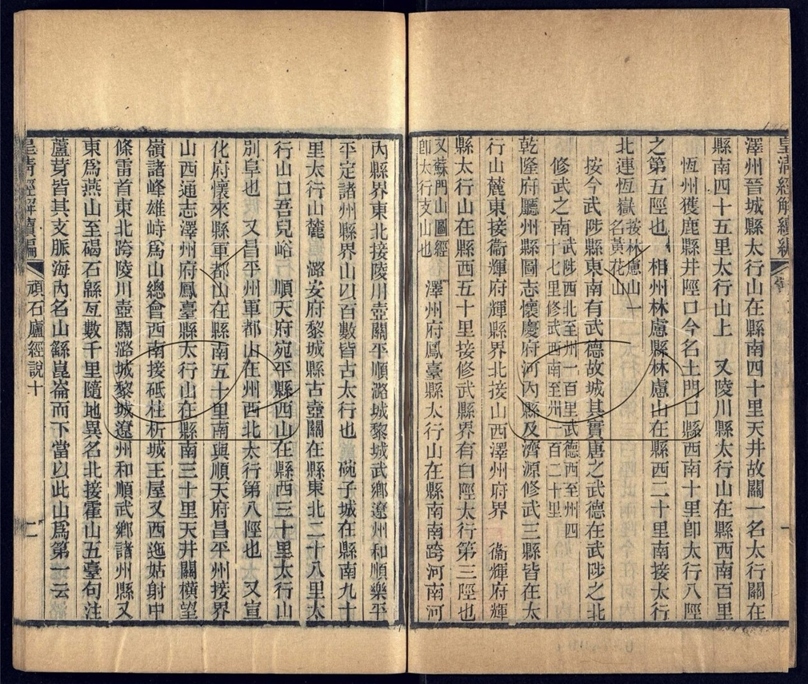 澤州晉城縣太行山在縣南四十里天井故關一名太行關在
縣南四十五里太行山上　又陵川縣太行山在縣西南百里
恆州獲鹿縣井陘口今名土門口縣西南十里卽太行八陘
之第五陘也　相州林慮縣林慮山在縣西二十里南接太行
北連恆嶽按林慮山一名黃花山
按今武陟縣東南有武德故城其實唐之武德在武陟之北
修武之南武陟西北至州一百里武德西至州四十七里修武西南至州一百二十里
乾隆府廳州縣圖志懷慶府河內縣及濟源修武三縣皆在太
行山麓東接衞輝府輝縣界北接山西澤州府界　衞輝府輝
縣太行山在縣西五十里接修武縣界有白陘太行第三陘也
又蘇門山圖經卽太行支山也　澤州府鳳臺縣太行山在縣南南跨河南河
內縣界東北接陵川壺關平順潞城黎城武鄉遼州和順樂平
平定諸州縣界山以百數皆古太行也　碗子城在縣南九十
里太行山麓　潞安府黎城縣古壺關在縣東北二十八里太
行山口吾兒峪　順天府宛平縣西山在縣西三十里太行山
別阜也　又昌平州軍都山在州西北太行第八陘也　又宣
化府懷來縣軍都山在縣南五十里南與順天府昌平州接界
山西通志澤州府鳳臺縣太行山在縣南三十里天井關橫望
嶺諸峰雄峙爲山總會西南接砥柱析城王屋又西迤姑射中
條雷首東北跨陵川壺關潞城黎城遼州和順武鄉諸州縣又
東爲燕山至碣石緜亙數千里隨地異名北接霍山五臺句注
蘆芽皆其支脈海內名山繇崑崙而下當以此山爲第一云
皇清經解續編
頑石廬經說十